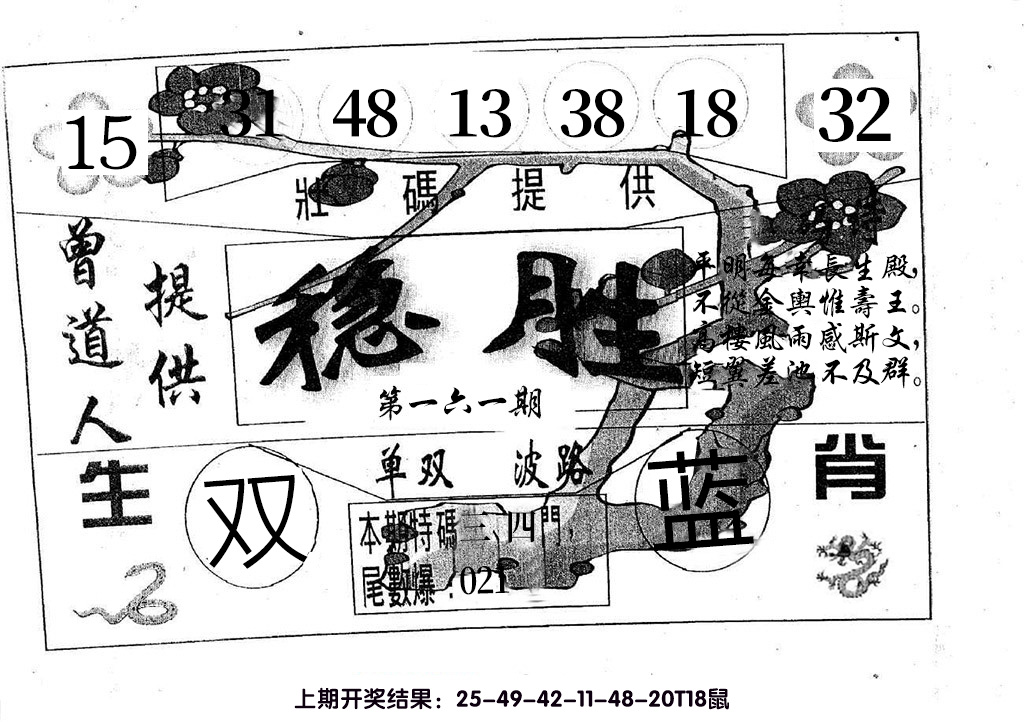 15 31 48 13 38 18 32
壯碼提供
曾道人
提供
稳胜
第一六一期
平明每幸長生殿，
不從金輿惟壽王。
高樓風雨感斯文，
短翼差池不及群。
生肖
单双 波路
双 蓝
本期特碼三、四門，
尾數爆：021
上期开奖结果：25-49-42-11-48-20T18鼠